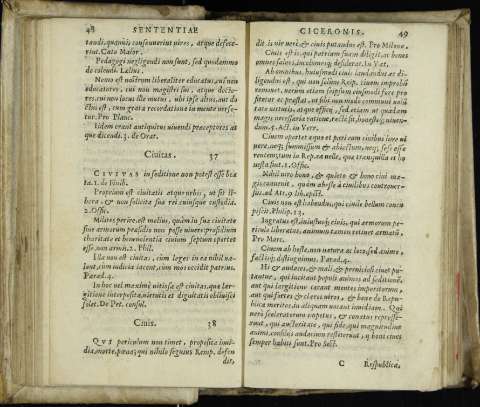 48 SENTENTIAE
tandi, quamuis consenuerint uires, atque defece
rint. Cato Maior.
Pedagogi negligendi non sunt, sed quodammo
do colendi. Lælius.
Nemo est nostrûm liberaliter educatus, cui non
educatores, cui non magistri sui, atque docto-
res, cui non locus ille mutus, ubi ipse altus, aut do
ctus est, cum grata recordatione in mente uerse-
tur. Pro Planc.
Iidem erant antiquitus uiuendi præceptores at
que dicendi. 3. de Orat.
Ciuitas. 37
CIVITAS in seditione non potest esse bea
ta. 1. de finib.
Proprium est ciuitatis atque urbis, ut sit li-
bera, & non solicita suæ rei cuiusque custodia.
2. Offic.
Militës perire est melius, quàm in sua ciuitate
sine armorum præsidio non posse uiuere: propositum
charitate et beneuolentia ciuium septum oportet
esse non armis. 2. Phil.
Illa non est ciuitas, cum leges in ea nihil ua-
lent, cum iudicia iacent, cum mos occidit patrius.
Parad. 4.
In hoc uel maximè uitiosa est ciuitas, quæ lar-
gitione interposita, uirtutis et dignitatis obliuisci
solet. De Pet. consul.
Ciuis. 38
QVI periculum non uitauit, proposita inui-
dia, morte, pœna, qui nihilo segnius Remp. defen
dit,
CICERONIS. 49
dit is uir uerè & ciuis putandus est. Pro Milone.
Ciuis est is, qui patriam suam diligit, ac bonos
omnes saluos, incolumesque desiderat. In Vat.
Ab omnibus, huiusmodi ciuis laudandus ac di-
ligendus est, qui non solum Reip. ciuem improbũ
remouet, uerùm etiam seipsum eiusmodi fore pro
fitetur ac præstat, ut sibi non modo communi uolũ
tate uirtutis, atque officij, sed etiam ut quadam
magis necessaria ratione, recte sit, honestèque uiuen-
dum. 5. Act. in Verr.
Ciuem oportet æquo et pari cum ciuibus iure ui
uere, neque summissum & abiectum, neque sese effe
rentem, tum in Rep. ea uelle, quæ tranquilla et ho
nesta sint. 1. Offic.
Nihil uiro bono, & quieto & bono ciui ma-
gis conuenit, quàm abesse à ciuilibus controuer-
sijs. ad Att. 9. lib. epist.
Ciuis non est habendus, qui ciuile bellum concu
piscit. Philip. 13.
Ingratus est iniustusque ciuis, qui armorum pe-
riculo liberatus, animum tamen retinet armatũ.
Pro Marc.
Ciuem ab hoste, non natura ac loco, sed animo,
factisque distinguimus. Parad. 4.
Hi & audaces, & mali, & perniciosi ciues pu-
tantur, qui incitant populi animos ad seditionẽ,
aut qui largitione cæcant mentes imperitorum,
aut qui fortes & claros uiros, & bene de Repu-
blica meritos, in aliquam uocant inuidiam. Qui
uerò sceleratorum captus, & conatus represse-
runt, qui auctoritate, qui fide, qui magnitudine
animi, consilijs audacium restiterunt, ij boni ciues
semper habiti sunt. Pro Sest.
C Respublica,